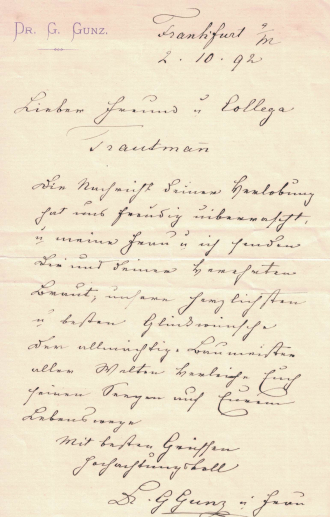 DR. G. GUNZ.
Frankfurt a/M
2. 10. 92
Lieber Freund u Collega
Trautmann
Die Nachricht deiner Verlobung
hat uns freudig überrascht,
u meine Frau u ich senden
Dir und deiner Verehrten
Braut, unsere herzlichsten
u besten Glückwünsche
Der allmächtige Baumeister
aller Welten Verleihe Euch
seinen Seegen auf Eurem
Lebenswege
Mit besten Grüssen
Hochachtungsvoll
Dr. G Gunz u. Frau